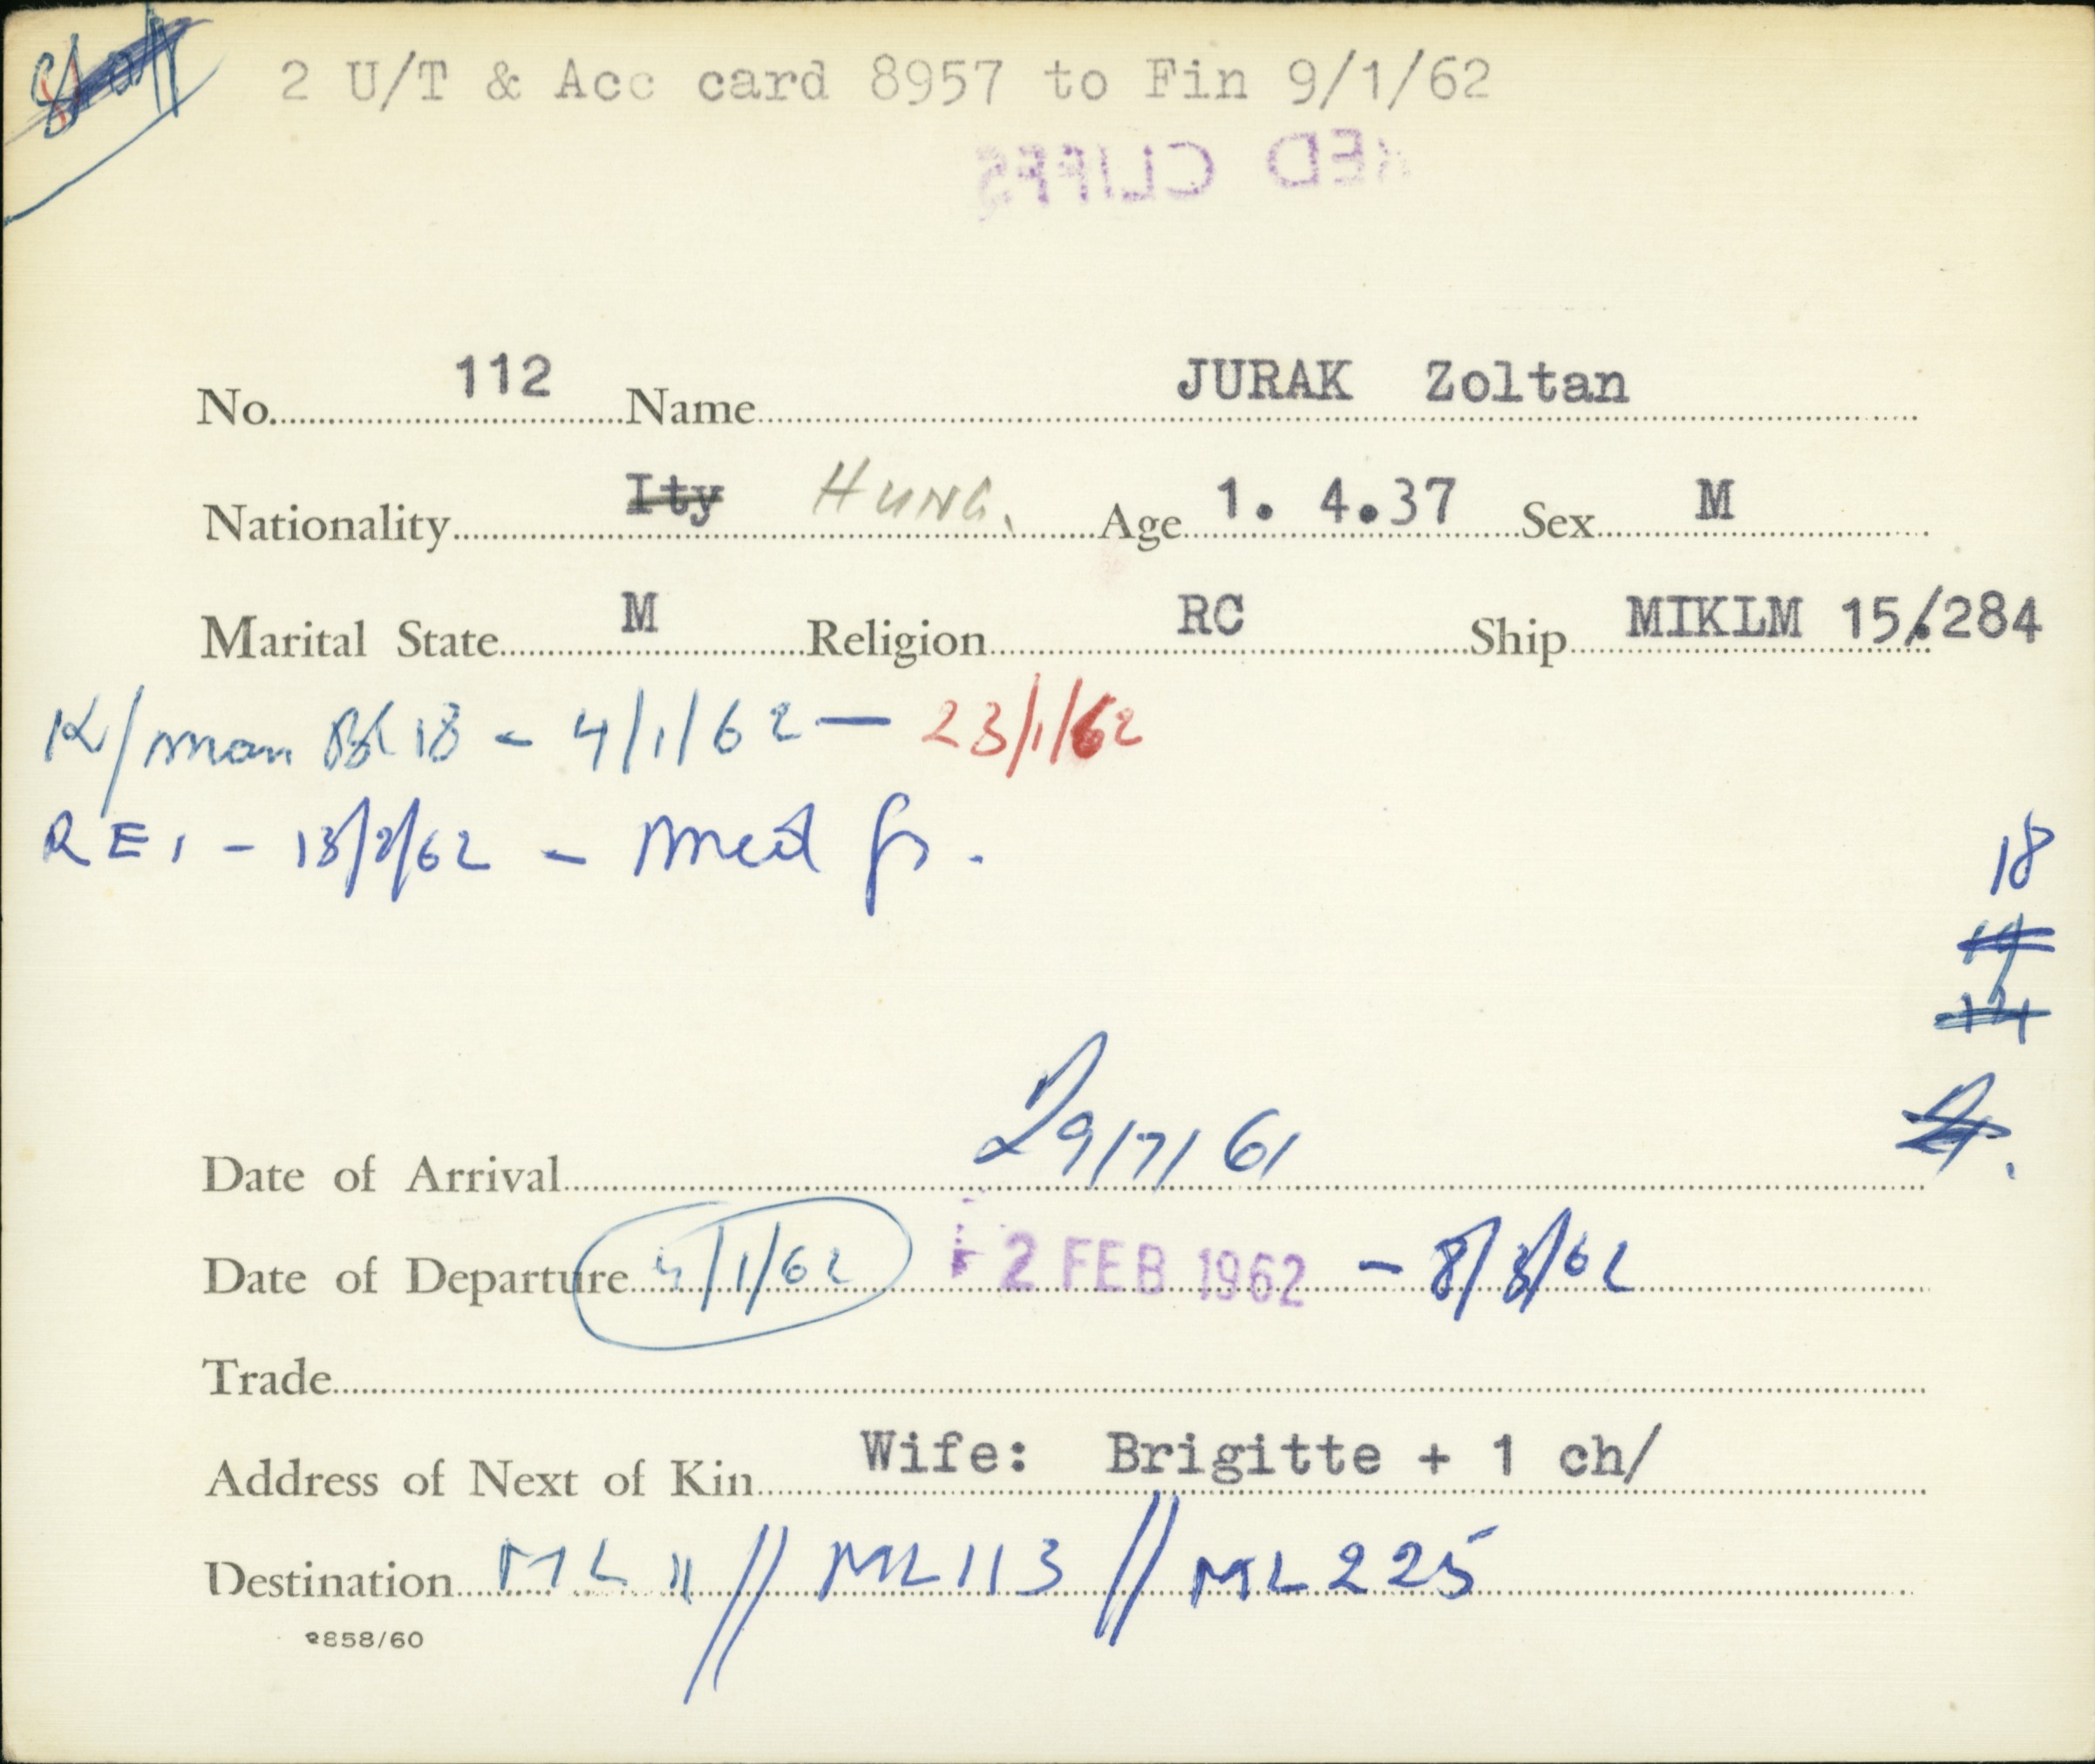 Staff 2 U/T & Acc card 8957 to Fin 9/1/62
RED CLIFFS
No. 112 Name JURAK Zoltan
Nationality Ity HUNG. Age 1. 4.37 Sex M
Marital State M Religion RC Ship MIKLM 15/284
K/man Bk 18 - 4/1/62 — 23/1/62
RE, - 13/2/62 -
18
19
Date of Arrival 29/7/61
Date of Departure 4/1/62 - 2 FEB 1962 - 8/3/62
Trade
Address of Next of Kin Wife: Brigitte + 1 ch/
Destination ML 11 // ML 113 // ML 225
2858/60